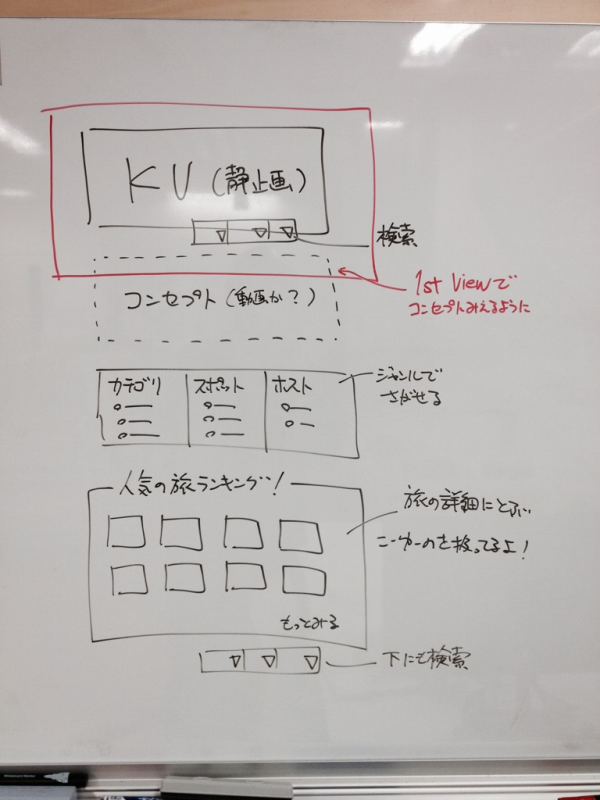 KV (静止画)
検索
コンセプト (動画か?)
1st Viewで
コンセプトみえるように
カテゴリ
スポット
ホスト
ジャンルで
さがせる
人気の旅ランキング!
旅の詳細にとぶ
こーゆーのを扱ってるよ!
もっとみる
下にも検索